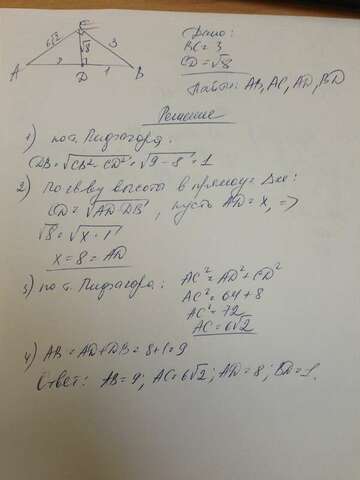 Дано:
BC = 3
CD = √8
Найти: AB, AC, AD, BD
C
6√2
√8
3
A
D
1
B
Решение
1) по т. Пифагора.
DB = √CB² - CD² = √9 - 8 = 1
2) По св-ву высота в прямоуг Δ-ке:
CD = √AD·DB, пусть AD = x, =>
√8 = √x·1
x = 8 = AD
3) по т. Пифагора:
AC² = AD² + CD²
AC² = 64 + 8
AC² = 72
AC = 6√2
4) AB = AD + DB = 8 + 1 = 9
Ответ: AB = 9; AC = 6√2; AD = 8; BD = 1.